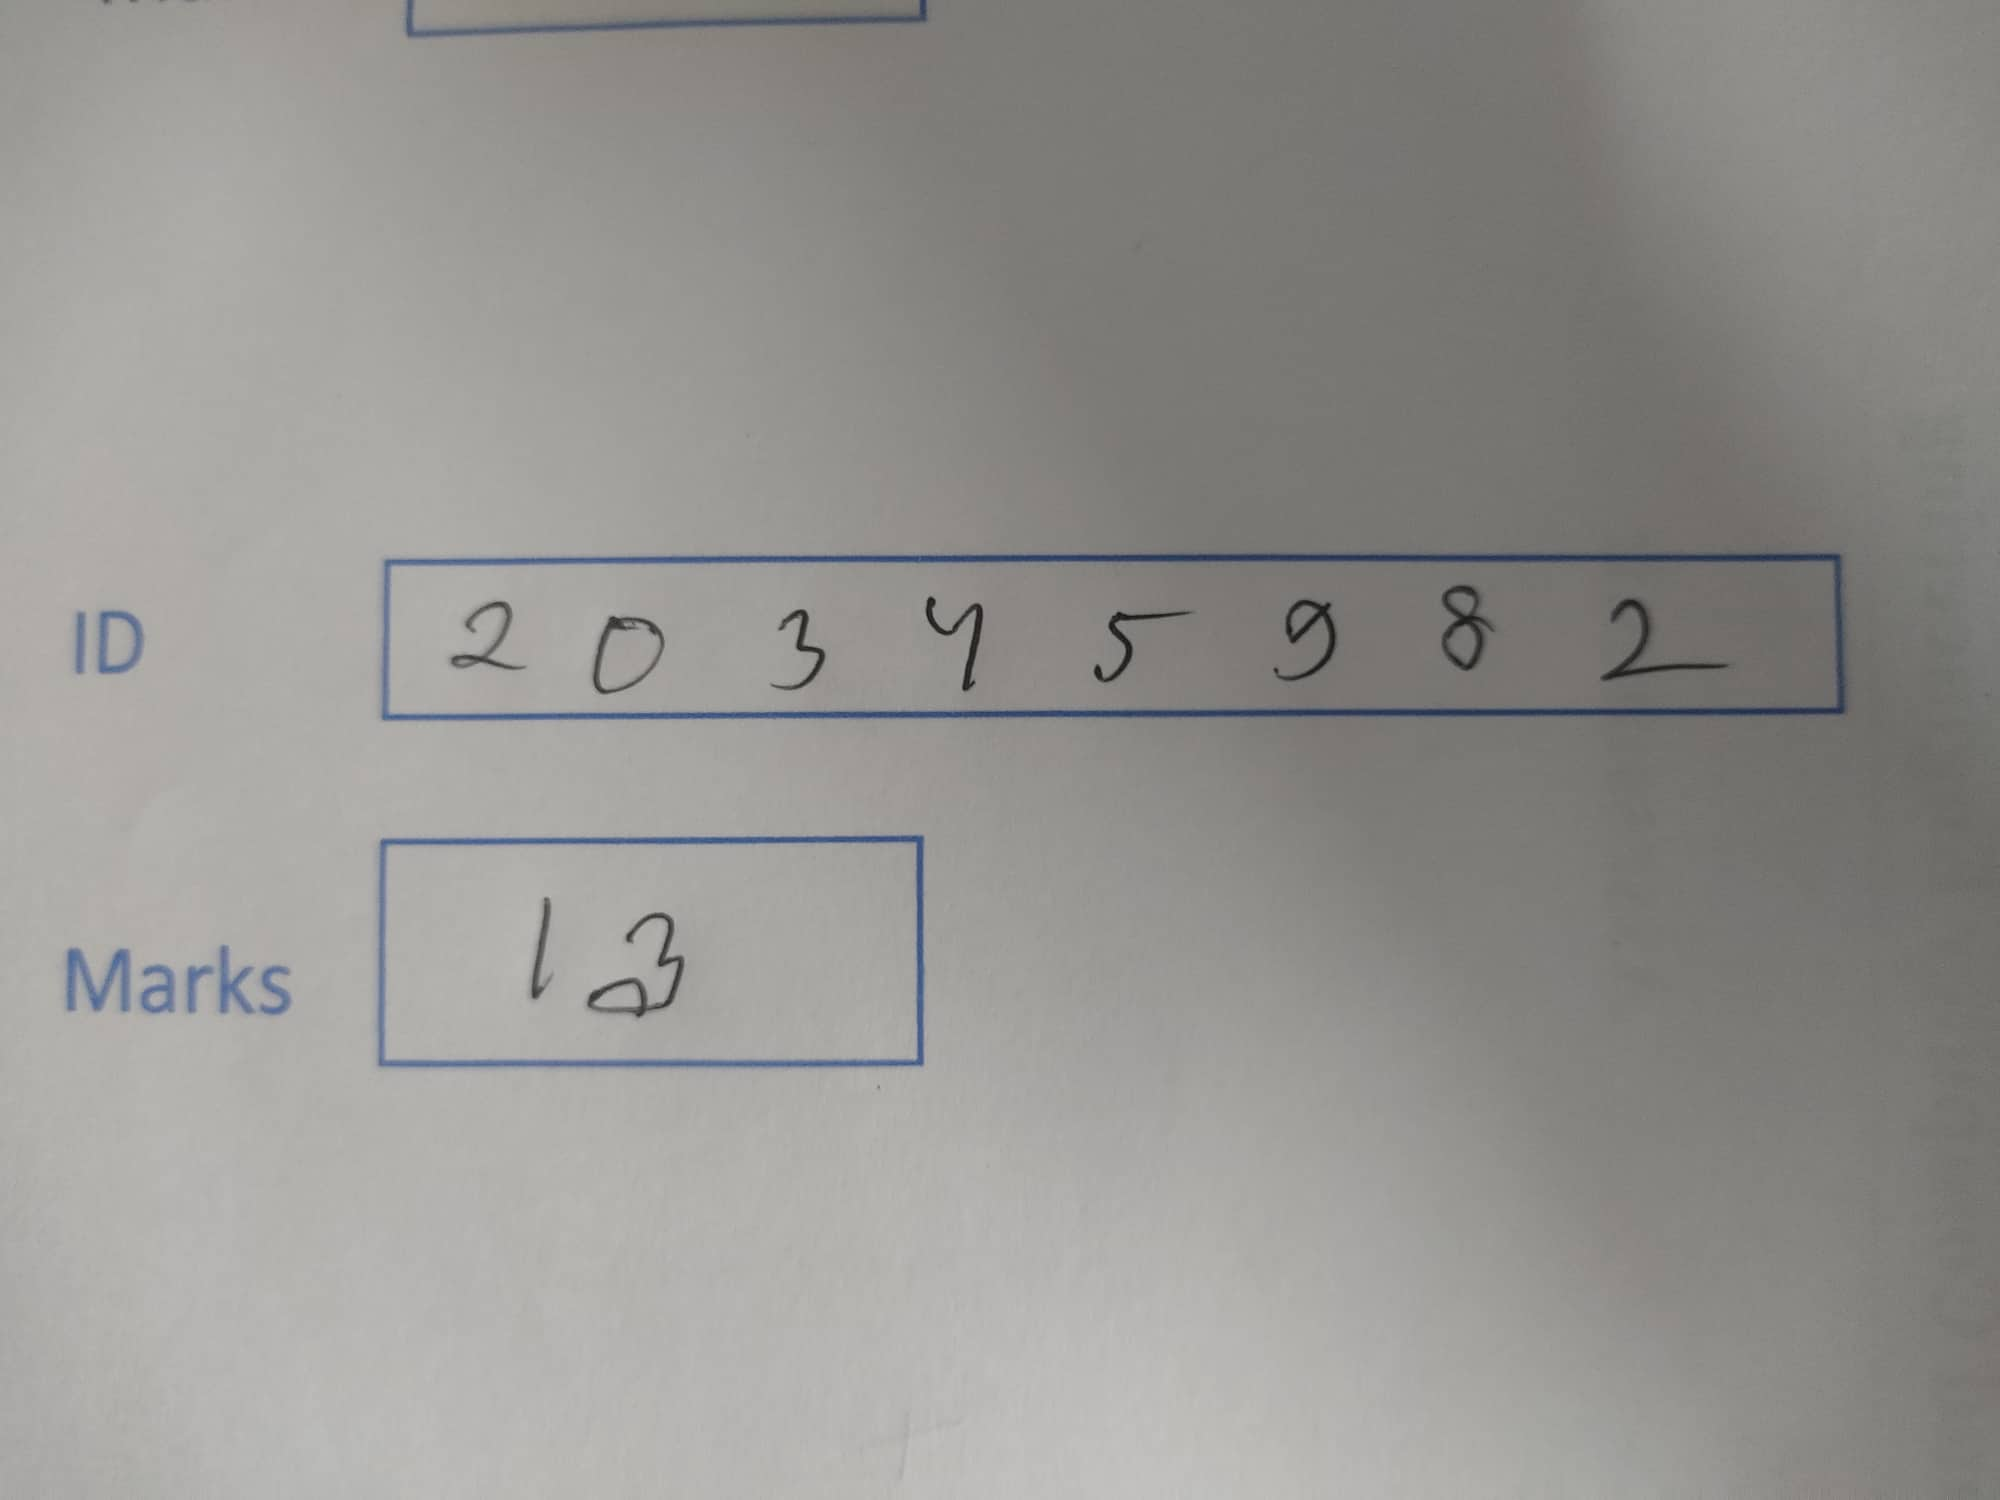 ID 2 0 3 4 5 9 8 2
Marks 13